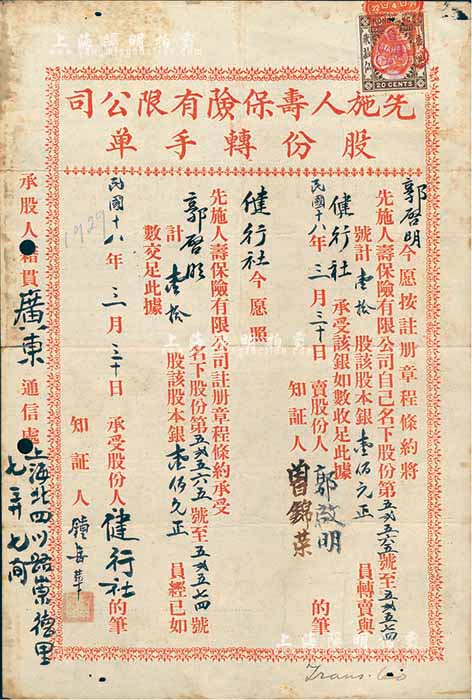 先施人壽保險有限公司
股份轉手單
郭啓明今愿按註册章程條約將
先施人壽保險有限公司自己名下股份第五〤五六五號至五〤五七四
號計壹拾股該股本銀壹佰元正員轉賣與
健行社承受該銀如數收足此據
民國十八年三月三十日賣股份人郭啟明的筆
知証人曾錦荣
健行社今愿照
先施人壽保險有限公司註册章程條約承受
郭啓明名下股份第五〤五六五號至五〤五七四號
計壹拾股該股本銀壹佰元正員經已如
數交足此據
民國十八年三月三十日承受股份人健行社的筆
知証人
承股人籍貫廣東通信處上海北四川路崇德里
七弄七間
1929
20 CENTS
Trans.